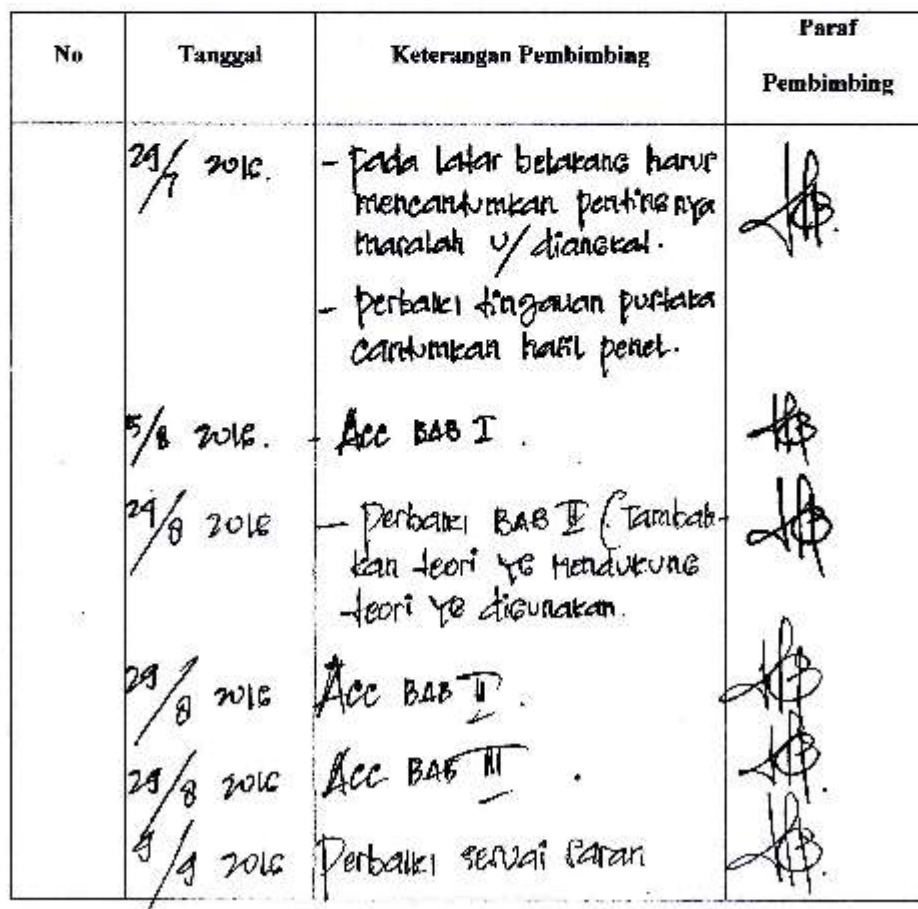 No Tanggal Keterangan Pembimbing Paraf Pembimbing
29/7 2016. - pada latar belakang harus
mencantumkan pentingnya
masalah u/ diangkat.
- perbaiki tingauan pustaka
cantumkan hasil penel.
5/8 2016. - Acc BAB I .
24/8 2016 - Perbaiki BAB II ( Tambah-
kan teori yg mendukung
teori yg digunakan.
29/8 2016 Acc BAB II .
29/8 2016 Acc BAB III .
9/9 2016 Perbaiki sesuai saran